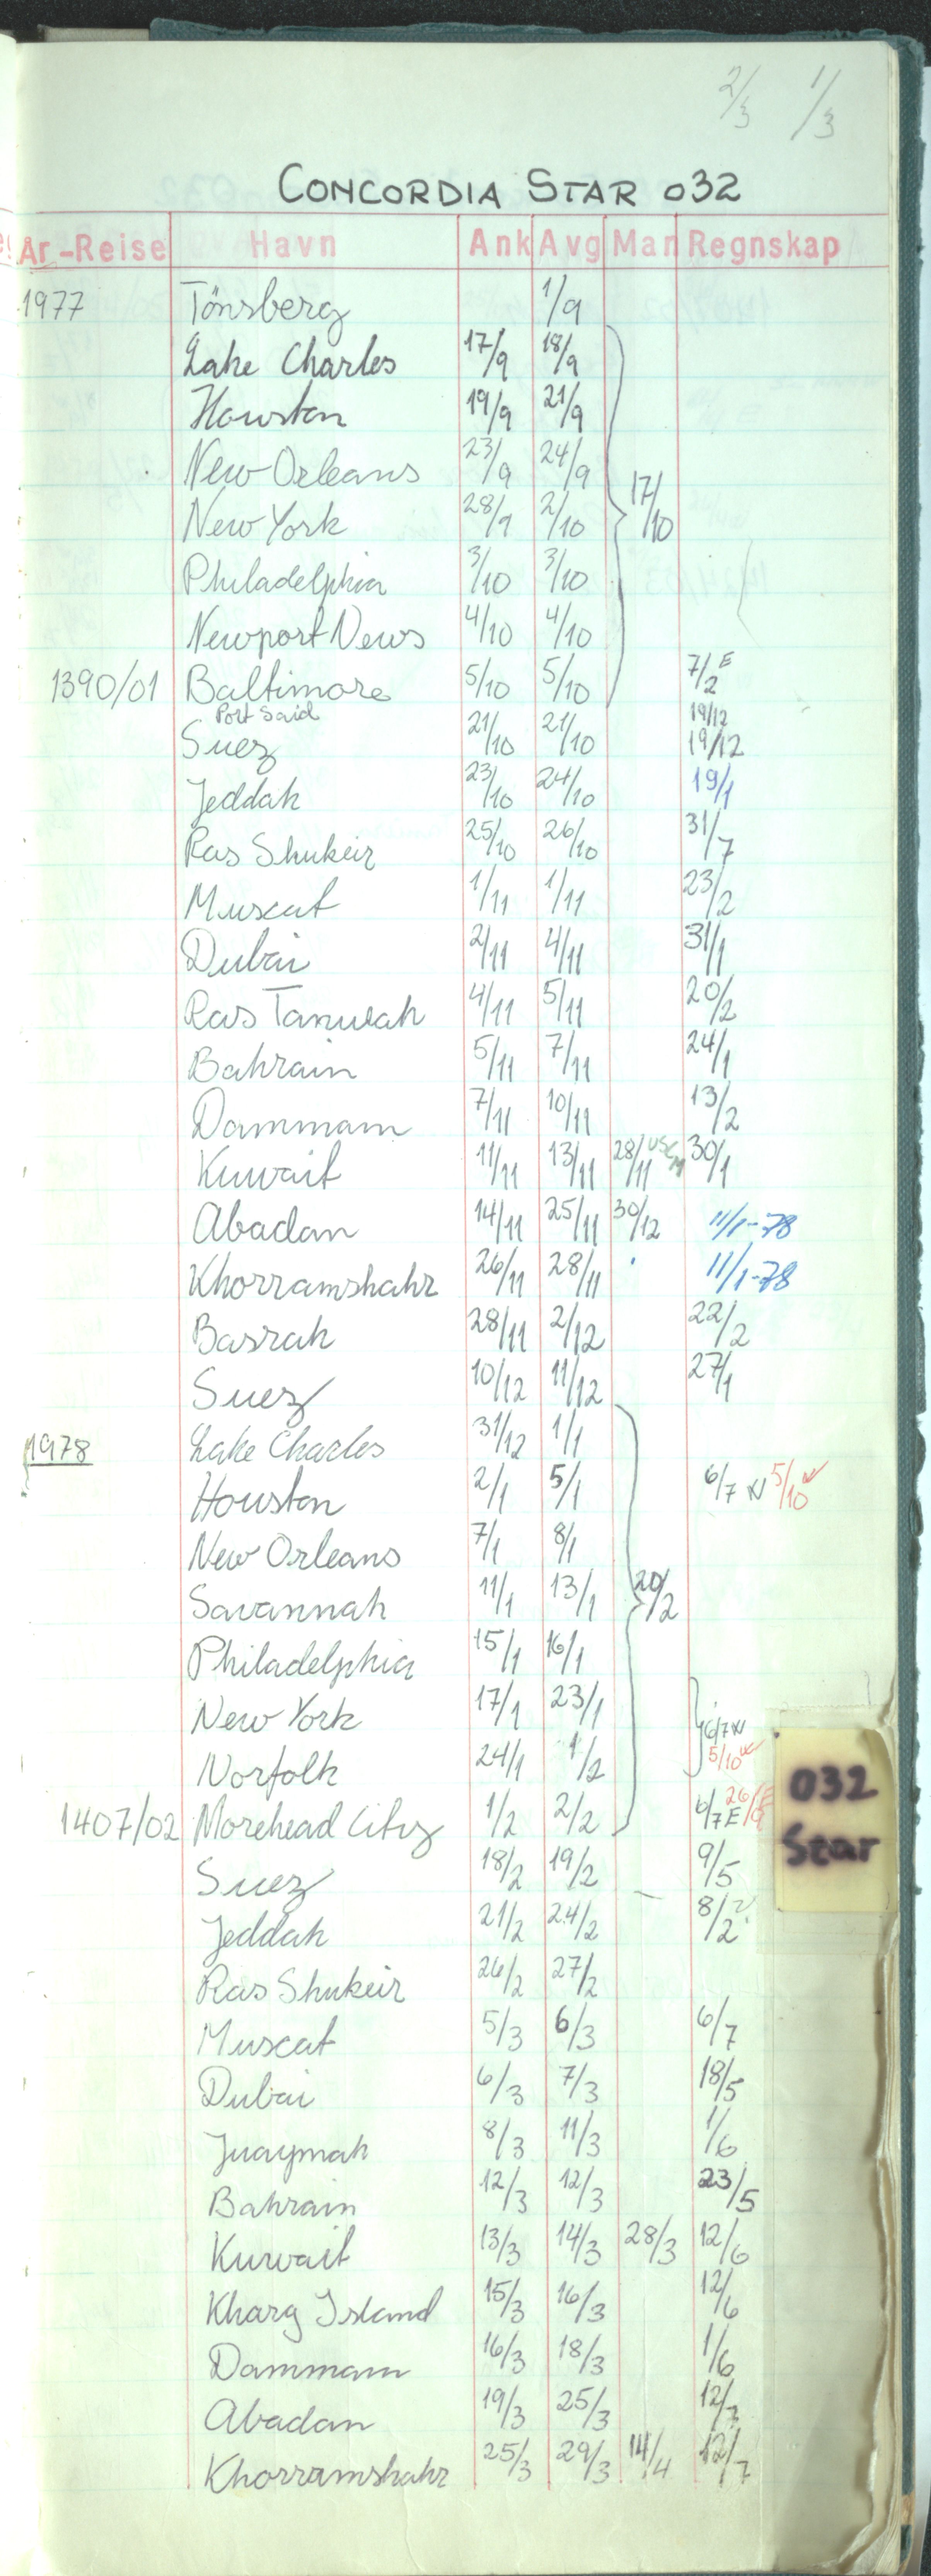 2/3 1/3
CONCORDIA STAR 032
År-Reise Havn Ank Avg Man Regnskap
1977 Tönsberg 1/9
Lake Charles 17/9 18/9
Houston 19/9 21/9
New Orleans 23/9 24/9
17/10
New York 28/9 2/10
Philadelphia 3/10 3/10
Newport News 4/10 4/10
1390/01 Baltimore 5/10 5/10 7/2 E
Port Said 19/12
Suez 21/10 21/10 19/12
Jeddah 23/10 24/10 19/1
Ras Shukeir 25/10 26/10 31/7
Muscat 1/11 1/11 23/2
Dubai 2/11 4/11 31/1
Ras Tanurah 4/11 5/11 20/2
Bahrain 5/11 7/11 24/1
Dammam 7/11 10/11 13/2
Kuwait 11/11 13/11 28/11 30/1
Abadan 14/11 25/11 30/12 11/1-78
Khorramshahr 26/11 28/11 11/1-78
Basrah 28/11 2/12 22/2
Suez 10/12 11/12 27/1
1978 Lake Charles 31/12 1/1
Houston 2/1 5/1 6/7 N 5/10
New Orleans 7/1 8/1
Savannah 11/1 13/1 20/2
Philadelphia 15/1 16/1
New York 17/1 23/1 6/7 N
5/10
Norfolk 24/1 1/2
1407/02 Morehead City 1/2 2/2 6/7 E 26/9
Suez 18/2 19/2 9/5
Jeddah 21/2 24/2 8/2 ?
Ras Shukeir 26/2 27/2
Muscat 5/3 6/3 6/7
Dubai 6/3 7/3 18/5
Juaymah 8/3 11/3 1/6
Bahrain 12/3 12/3 23/5
Kuwait 13/3 14/3 28/3 12/6
Kharg Island 15/3 16/3 12/6
Dammam 16/3 18/3 1/6
Abadan 19/3 25/3 12/7
Khorramshahr 25/3 29/3 14/4 12/7
032
Star